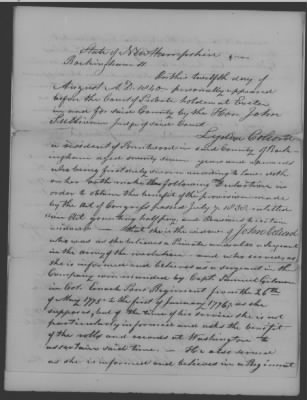 State of New Hampshire
Rockingham ss
On this twelfth day of
August A.D. 1840 personally appeared
before the Court of Probate holden at Exeter
in and for said County by the Hon John
Sullivan judge of said Court
Lydia
a resident of Brentwood in said County of Rock
ingham aged seventy seven years and upwards
who being first duly sworn according to law doth
on her oath make the following Declaration in
order to obtain the benefit of the provision made
by the Act of Congress passed July 7 1838 entitled
"an Act granting half pay and Pensions to certain
widows" — That she is the widow of John
who was as she believes a Private
in the army of the revolution and who served as
she is informed and believes as a sergeant in the
Company commanded by Capt Samuel Gilman
in Col. Enoch Poor Regiment from the 26th
of May 1775 to the first of January 1776, as she
supposes, but of the time of his service she is not
particularly informed and asks the benefit
of the rolls and records at Washington to
ascertain said time. — He also served
as she is informed and believed in a Regiment